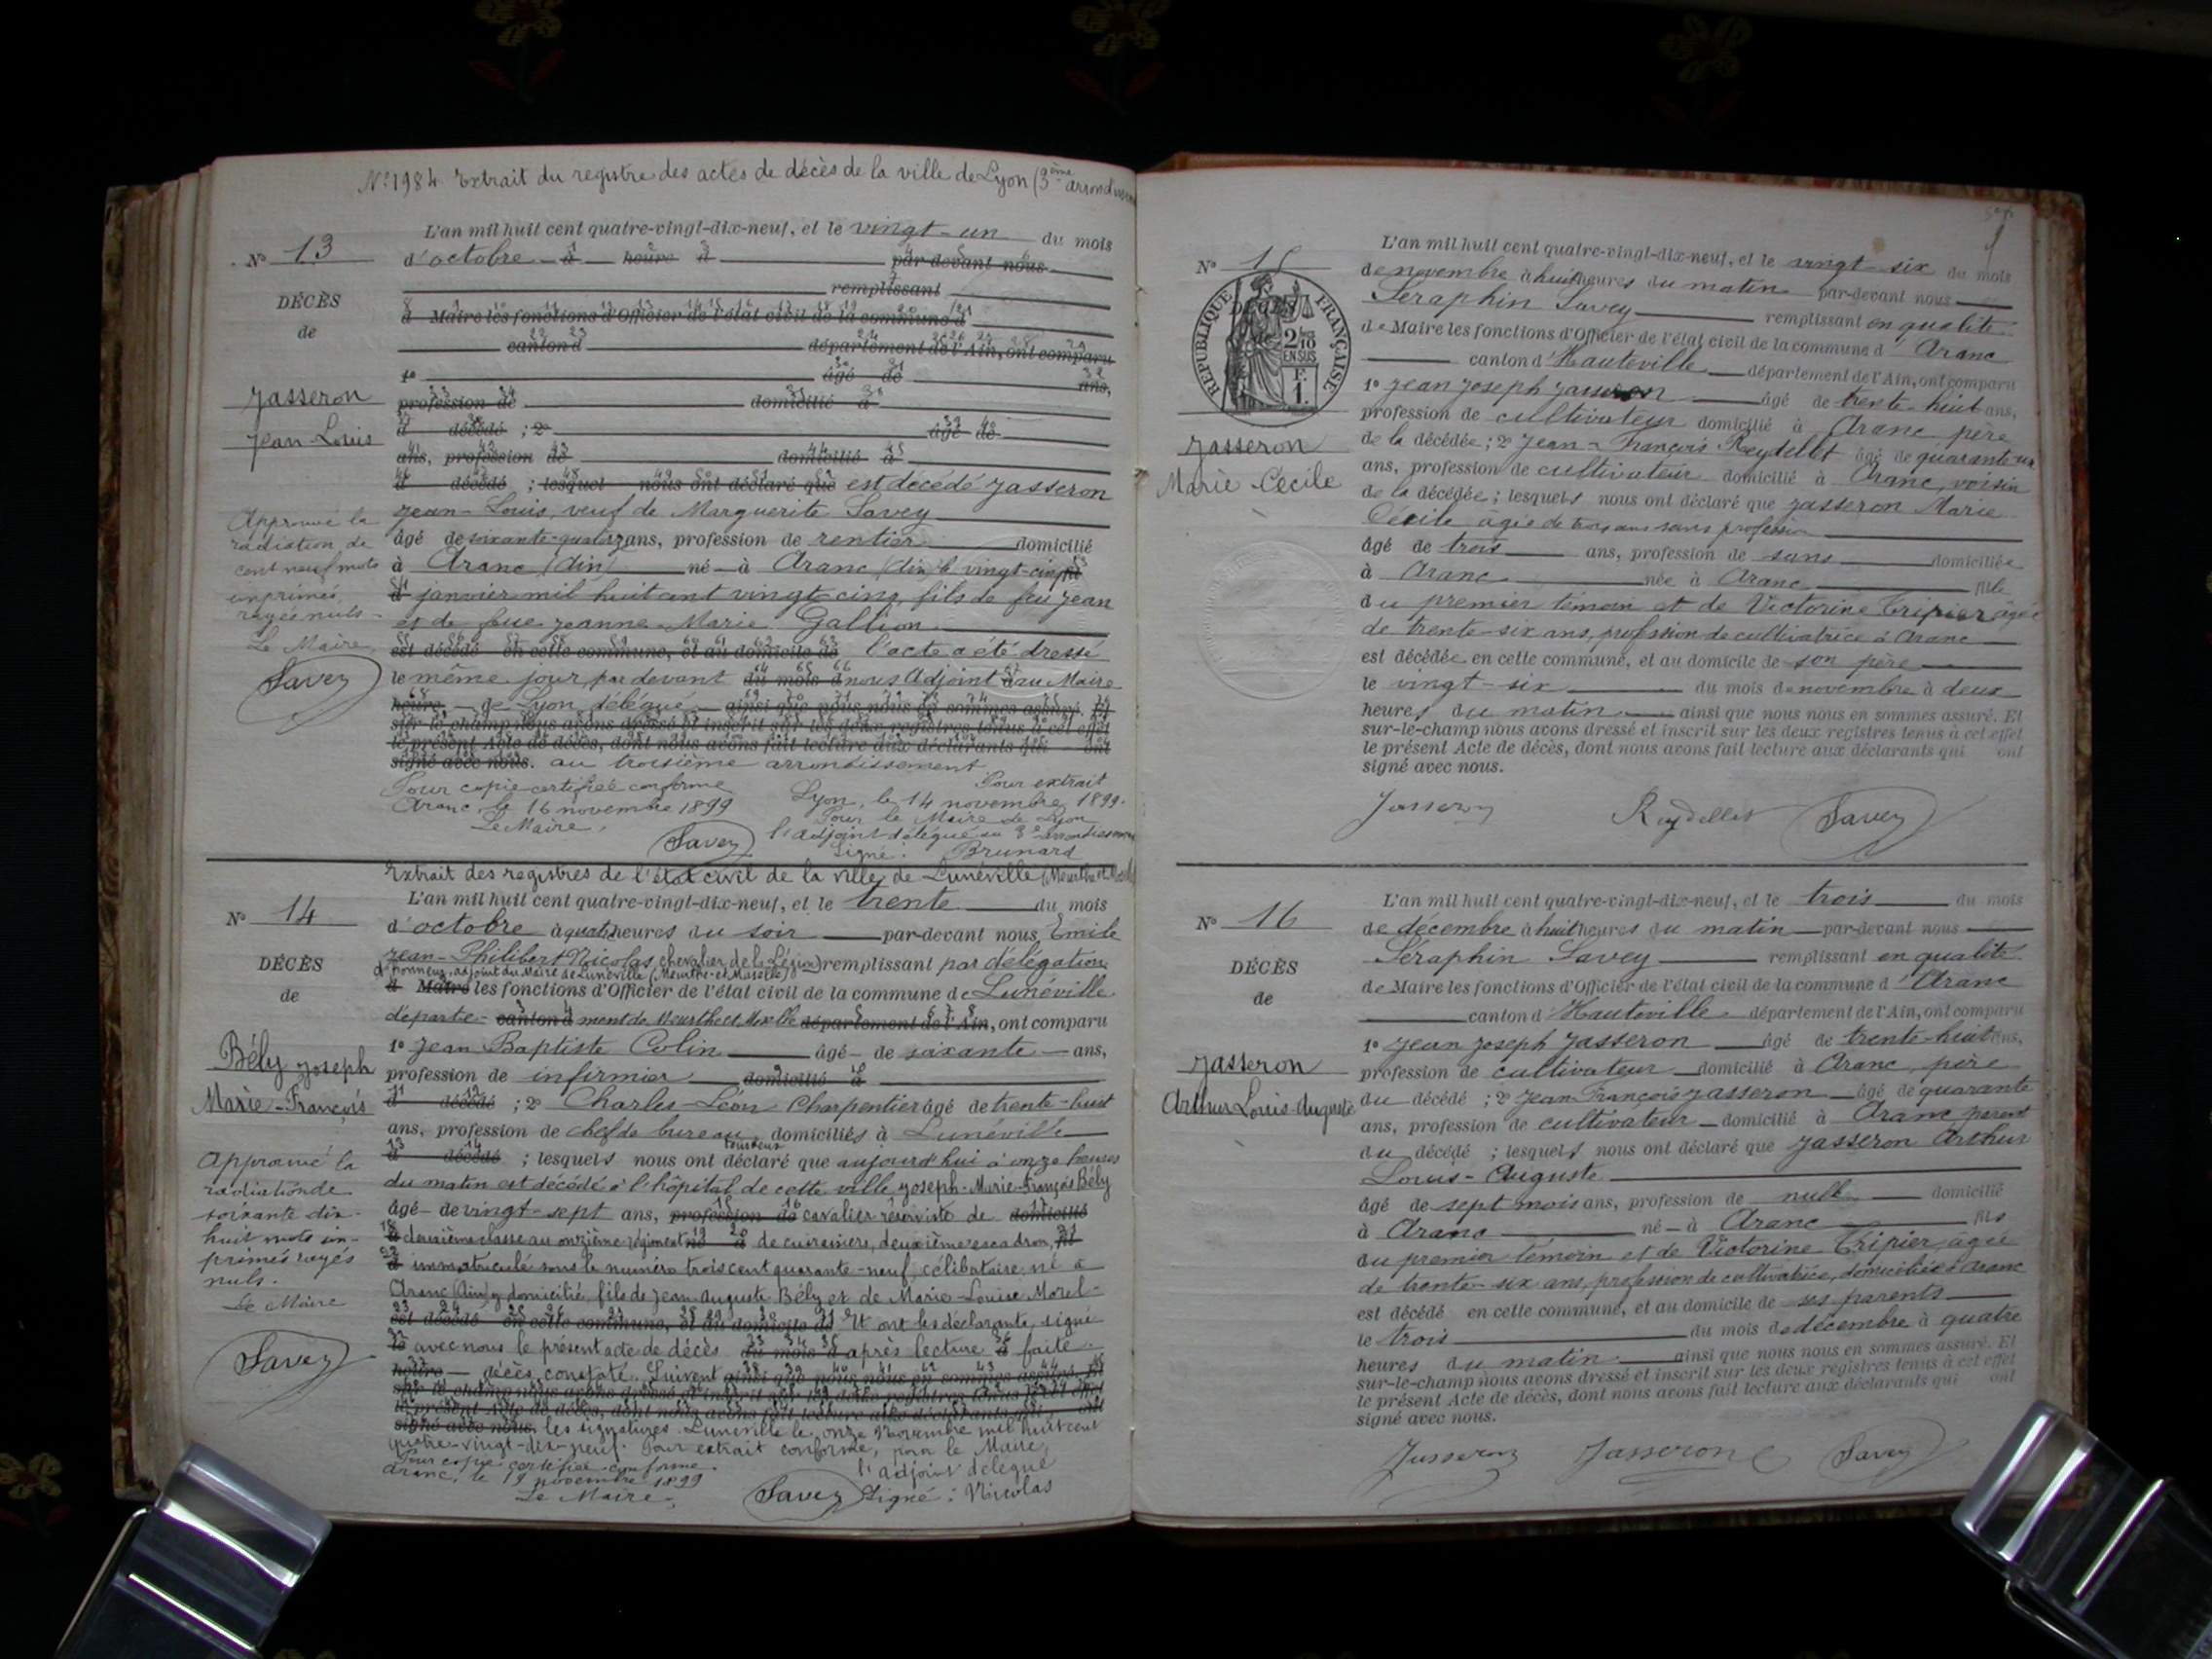 N° 1984. Extrait du registre des actes de décès de la ville de Lyon (3ème
L'an mil huit cent quatre-vingt-dix-neuf, et le vingt-un du mois
N° 13
d'octobre à heure à par-devant nous
remplissant
DÉCÈS
d Maire les fonctions d'Officier de l'état civil de la commune d
de
canton d département de l'Ain, ont comparu
1° âgé de ans,
Jasseron
profession de domicilié à
Jean-Louis
d décédé ; 2° âgé de
ans, profession de domicilié à
d décédé ; lesquels nous ont déclaré que est décédé Jasseron
Jean-Louis, veuf de Marguerite Savey
âgé de soixante-quatorze ans, profession de rentier domicilié
à Aranc (Ain) né à Aranc (Ain) le vingt-cinq
d janvier mil huit cent vingt-cinq, fils de feu Jean
et de feue Jeanne-Marie Gallion
est décédé en cette commune, et au domicile de l'acte a été dressé
le même jour, par devant du mois d nous Adjoint à au Maire
heure de Lyon, délégué ainsi que nous nous en sommes assuré. Et
sur-le-champ nous avons dressé et inscrit sur les deux registres tenus à cet effet
le présent Acte de décès, dont nous avons fait lecture aux déclarants qui ont
signé avec nous. au troisième arrondissement
Approuvé la
radiation de
cent neuf mots
imprimés,
rayés nuls
Le Maire,
Savey
Pour copie certifiée conforme
Aranc, le 16 novembre 1899
Le Maire,
Savey
Pour extrait
Lyon, le 14 novembre 1899.
Pour le Maire de Lyon
l'adjoint délégué au 3e
Signé : Brunard
Extrait des registres de l'état civil de la ville de Lunéville
L'an mil huit cent quatre-vingt-dix-neuf, et le trente du mois
N° 14
d'octobre à quatre heures du soir par-devant nous Emile
Jean-Philibert Nicolas, chevalier de la Légion
DÉCÈS
d'honneur, adjoint du Maire de Lunéville (Meurthe-et-Moselle) remplissant par délégation
de
d Maire les fonctions d'Officier de l'état civil de la commune de Lunéville
départe- canton d ment de Meurthe et Moselle département de l'Ain, ont comparu
Bély Joseph
Marie-François
1° Jean Baptiste Colin âgé de soixante ans,
profession de infirmier domicilié à
d décédé ; 2° Charles-Léon Charpentier âgé de trente-huit
ans, profession de chef de bureau, tous deux domiciliés à Lunéville
d décédé ; lesquels nous ont déclaré que aujourd'hui à onze heures
du matin est décédé à l'hôpital de cette ville Joseph-Marie-François Bély
âgé de vingt-sept ans, profession de cavalier réserviste de domicilié
à deuxième classe au onzième régiment né à de cuirassiers, deuxième escadron,
d immatriculé sous le numéro trois cent quarante-neuf, célibataire, né à
Aranc (Ain) y domicilié, fils de Jean-Auguste Bély et de Marie-Louise Morel
est décédé en cette commune, et au domicile de Et ont les déclarants, signé
le avec nous le présent acte de décès du mois d après lecture à faite
heure décès constaté. Suivent ainsi que nous nous en sommes assuré. Et
sur-le-champ nous avons dressé et inscrit sur les deux registres tenus à cet effet
le présent Acte de décès, dont nous avons fait lecture aux déclarants qui ont
signé avec nous. les signatures. Lunéville le onze Novembre mil huit cent
quatre-vingt-dix-neuf. Pour extrait conforme, pour le Maire,
l'adjoint délégué
Signé : Nicolas
Pour copie certifiée conforme.
Aranc, le 19 novembre 1899
Le Maire,
Savey
Approuvé la
radiation de
soixante dix-
huit mots im-
primés rayés
nuls.
Le Maire
Savey
L'an mil huit cent quatre-vingt-dix-neuf, et le vingt-six du mois
N° 15
de novembre à huit heures du matin par-devant nous
Séraphin Savey remplissant en qualité
DÉCÈS
de
RÉPUBLIQUE FRANÇAISE
2/10 EN SUS
F. 1.
de Maire les fonctions d'Officier de l'état civil de la commune d'Aranc
canton d'Hauteville département de l'Ain, ont comparu
1° Jean Joseph Jasseron âgé de trente-huit ans,
profession de cultivateur domicilié à Aranc père
Jasseron
Marie-Cécile
de la décédée ; 2° Jean-François Reydellet âgé de quarante-un
ans, profession de cultivateur domicilié à Aranc, voisin
de la décédée ; lesquels nous ont déclaré que Jasseron Marie
Cécile âgée de trois ans sans profession
âgé de trois ans, profession de sans domiciliée
à Aranc née à Aranc fille
du premier témoin et de Victorine Tripier âgée
de trente-six ans, profession de cultivatrice à Aranc
est décédée en cette commune, et au domicile de son père
le vingt-six du mois de novembre à deux
heures du matin ainsi que nous nous en sommes assuré. Et
sur-le-champ nous avons dressé et inscrit sur les deux registres tenus à cet effet
le présent Acte de décès, dont nous avons fait lecture aux déclarants qui ont
signé avec nous.
Jasseron Reydellet Savey
L'an mil huit cent quatre-vingt-dix-neuf, et le trois du mois
N° 16
de décembre à huit heures du matin par-devant nous
Séraphin Savey remplissant en qualité
DÉCÈS
de Maire les fonctions d'Officier de l'état civil de la commune d'Aranc
de
canton d'Hauteville département de l'Ain, ont comparu
1° Jean Joseph Jasseron âgé de trente-huit ans,
Jasseron
profession de cultivateur domicilié à Aranc, père
Arthur Louis-Auguste
du décédé ; 2° Jean François Jasseron âgé de quarante
ans, profession de cultivateur domicilié à Aranc parent
du décédé ; lesquels nous ont déclaré que Jasseron Arthur
Louis-Auguste
âgé de sept mois ans, profession de nulle domicilié
à Aranc né à Aranc fils
du premier témoin et de Victorine Tripier, âgée
de trente-six ans, profession de cultivatrice, domiciliée à Aranc
est décédé en cette commune, et au domicile de ses parents
le trois du mois de décembre à quatre
heures du matin ainsi que nous nous en sommes assuré. Et
sur-le-champ nous avons dressé et inscrit sur les deux registres tenus à cet effet
le présent Acte de décès, dont nous avons fait lecture aux déclarants qui ont
signé avec nous.
Jasseron Jasseron Savey